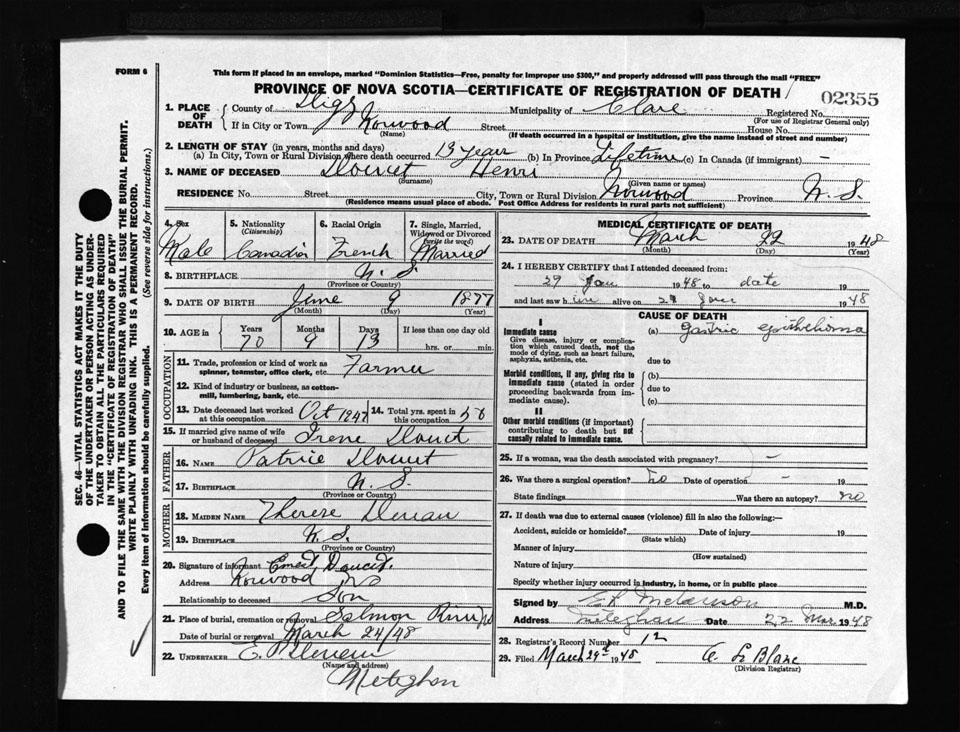 FORM 6
This form if placed in an envelope, marked "Dominion Statistics—Free, penalty for improper use $300," and properly addressed will pass through the mail "FREE"
PROVINCE OF NOVA SCOTIA—CERTIFICATE OF REGISTRATION OF DEATH
02355
1. PLACE OF DEATH County of Digby Municipality of Clare Registered No.
(For use of Registrar General only)
If in City or Town Norwood Street House No.
(Name) (If death occurred in a hospital or institution, give the name instead of street and number)
2. LENGTH OF STAY (in years, months and days)
(a) In City, Town or Rural Division where death occurred 19 years (b) In Province Lifetime (c) In Canada (if immigrant) —
3. NAME OF DECEASED Doucet Henri
(Surname) (Given name or names)
RESIDENCE No. Street City, Town or Rural Division Norwood Province N. S.
(Residence means usual place of abode. Post Office Address for residents in rural parts not sufficient)
4. Sex Male
5. Nationality (Citizenship) Canadian
6. Racial Origin French
7. Single, Married, Widowed or Divorced (write the word) Married
8. BIRTHPLACE N. S.
(Province or Country)
9. DATE OF BIRTH June 9 1877
(Month) (Day) (Year)
10. AGE in Years Months Days If less than one day old
70 9 13 hrs. or min.
OCCUPATION
11. Trade, profession or kind of work as spinner, teamster, office clerk, etc. Farmer
12. Kind of industry or business, as cotton-mill, lumbering, bank, etc.
13. Date deceased last worked at this occupation Oct 1947
14. Total yrs. spent in this occupation 50
15. If married give name of wife or husband of deceased Irene Doucet
FATHER
16. NAME Patrice Doucet
17. BIRTHPLACE N. S.
(Province or Country)
MOTHER
18. MAIDEN NAME Therese
19. BIRTHPLACE N. S.
(Province or Country)
20. Signature of informant Doucet.
Address Norwood NS
Relationship to deceased Son
21. Place of burial, cremation or removal Salmon River NS
Date of burial or removal March 24/48
22. UNDERTAKER
(Name and address)
Meteghan
MEDICAL CERTIFICATE OF DEATH
23. DATE OF DEATH March 22 1948
(Month) (Day) (Year)
24. I HEREBY CERTIFY that I attended deceased from:
29 Jan 1948 to date 19
and last saw him alive on Jan 1948
CAUSE OF DEATH
I
Immediate cause
Give disease, injury or complication which caused death, not the mode of dying, such as heart failure, asphyxia, asthenia, etc.
(a) gastric epithelioma
due to
Morbid conditions, if any, giving rise to immediate cause (stated in order proceeding backwards from immediate cause)
(b)
due to
(c)
II
Other morbid conditions (if important) contributing to death but not causally related to immediate cause.
25. If a woman, was the death associated with pregnancy? —
26. Was there a surgical operation? no Date of operation - 19
State findings Was there an autopsy? no
27. If death was due to external causes (violence) fill in also the following:—
Accident, suicide or homicide? Date of injury 19
(State which)
Manner of injury
(How sustained)
Nature of injury
Specify whether injury occurred in industry, in home, or in public place
Signed by M.D.
Address Meteghan Date 22 Mar 1948
28. Registrar's Record Number 12
29. Filed March 29th 1948 LeBlanc
(Division Registrar)
SEC. 46—VITAL STATISTICS ACT MAKES IT THE DUTY
OF THE UNDERTAKER OR PERSON ACTING AS UNDER-
TAKER TO OBTAIN ALL THE PARTICULARS REQUIRED
IN THE "CERTIFICATE OF REGISTRATION OF DEATH"
AND TO FILE THE SAME WITH THE DIVISION REGISTRAR WHO SHALL ISSUE THE BURIAL PERMIT.
WRITE PLAINLY WITH UNFADING INK. THIS IS A PERMANENT RECORD.
Every item of information should be carefully supplied. (See reverse side for instructions.)